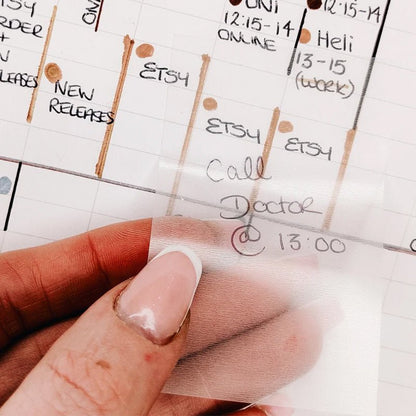 ETSY
ORDER
+
RELEASES
NEW
RELEASES
ETSY
UNI
12:15-14
ONLINE
12:15-14
Heli
13-15
(WORK)
ETSY
ETSY
Call
Doctor
@ 13:00